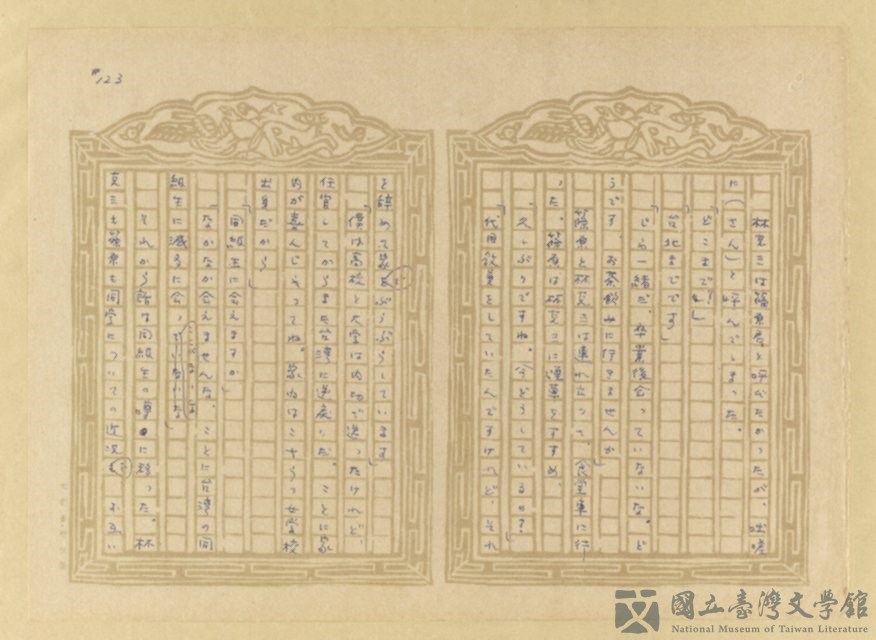 #123
林文三は篠原君と呼びたかったが、咄嗟
に「さん」と呼んでしまった。
「どこまで！」
「台北までです」
「じゃ一緒だ。卒業後会っていないな。ど
うです。お茶飲みに行きませんか」
篠原と林文三は連れ立って、食堂車に行
った。篠原は林文三に煙草をすすめ、
「久しぶりですね。今どうしているのす」
「代用教員をしていたんですけれど、それ
を辞めて家でぶらぶらしています」
「僕は高校と大学は内地で送ったけれど、
任官してからまた台湾に逆戻りだ。ことに家
内が喜んじゃってね。家内はこちらの女学校
出身だから」
「同級生に会えますか」
「なかなか会えませんな。ことに台湾の同
級生に滅多に会
それから話は同級生の噂に移った。林
文三も篠原も同学についての近況 お互い
國立臺灣文學館
National Museum of Taiwan Literature